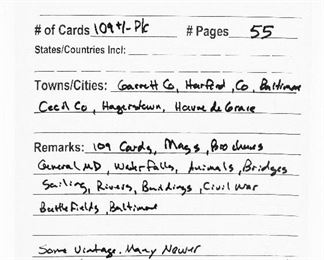 # of Cards 109 +/- P/c # Pages 55
States/Countries Incl:
Towns/Cities: Garrett Co, Harford, Co, Baltimore
Cecil Co, Hagerstown, Havre de Grace
Remarks: 109 Cards, Mags, Brochures
General MD, Waterfalls, Animals, Bridges
Sailing, Rivers, Buildings, Civil War
Battlefields, Baltimore
Some Vintage. Many Newer